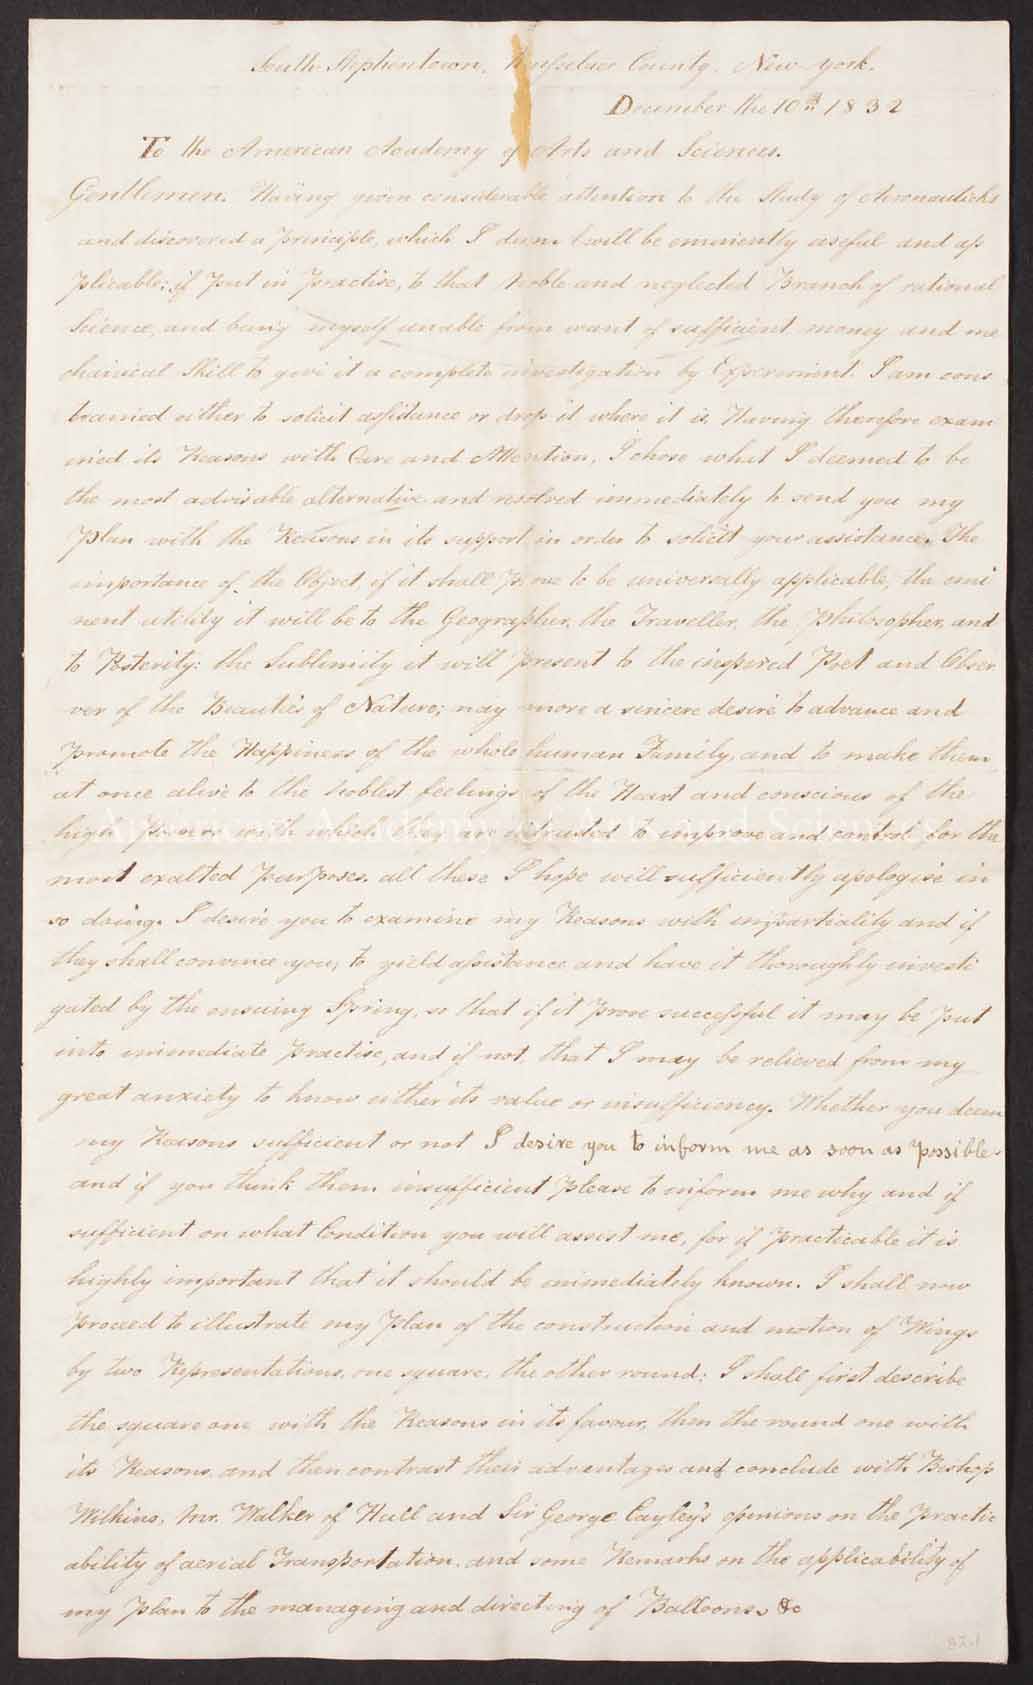 South Stephentown, Rensselaer County. New-York.
December the 10th 1832
To the American Academy of Arts and Sciences.
Gentlemen. Having given considerable attention to the Study of Aeronauticks
and discovered a principle, which I deem will be eminently useful and ap
plicable; if put in Practise, to that Noble and neglected Branch of rational
Science, and being myself unable from want of sufficient money and me
chanical Skill to give it a complete investigation by Experiment. I am cons
trained either to solicit assistance or drop it where it is. Having therefore exam
ined its Reasons with Care and Attention, I chose what I deemed to be
the most advisable alternative and resolved immediately to send you my
Plan with the Reasons in its support in order to solicit your assistance. The
importance of the Object, if it shall prove to be universally applicable, the emi
nent utility it will be to the Geographer, the Traveller, the Philosopher, and
to Posterity: the Sublimity it will present to the inspired Poet and Obser
ver of the Beauties of Nature; nay more a sincere desire to advance and
promote the Happiness of the whole human Family, and to make them
at once alive to the noblest feelings of the Heart and conscious of the
high powers with which they are intrusted to improve and control for the
most exalted Purposes. all these I hope will sufficiently apologise in
so doing. I desire you to examine my Reasons with impartiality and if
they shall convince you, to yield assistance and have it thoroughly investi
gated by the ensuing Spring, so that if it prove successful it may be put
into immediate practise, and if not, that I may be relieved from my
great anxiety to know either its value or insufficiency. Whether you deem
my Reasons sufficient or not I desire you to inform me as soon as possible
and if you think them insufficient please to inform me why and if
sufficient on what Condition you will assist me, for if practicable it is
highly important that it should be immediately known. I shall now
proceed to illustrate my Plan of the construction and motion of Wings
by two Representations, one square, the other round: I shall first describe
the square one with the Reasons in its favour, then the round one with
its Reasons and then contrast their advantages and conclude with Bishop
Wilkins, Mr. Walker of Hull and Sir George Cayley's opinions on the practic
ability of aerial Transportation, and some Remarks on the applicability of
my Plan to the managing and directing of Balloons. &c
American Academy of Arts and Sciences
82.1